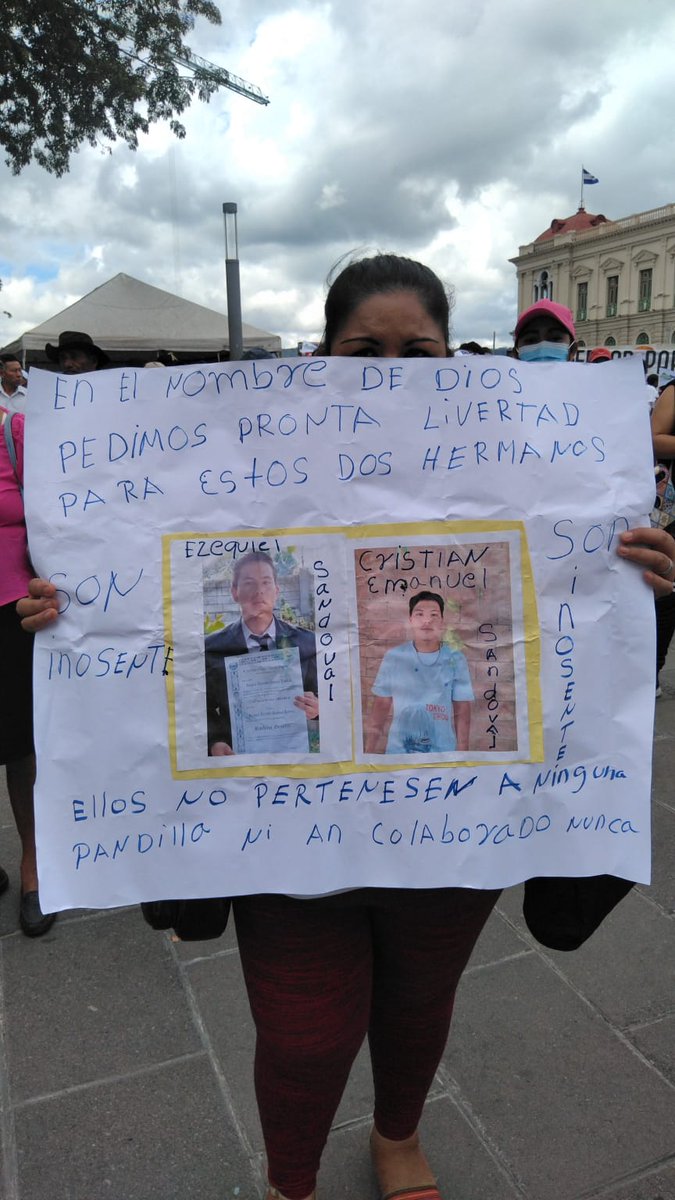 En El Nombre DE DIOS
PEDIMOS PRONTA LiVERTAD
PARA EStOS DOS HERMANOS
SON
inOSENTE
Ezequiel
Sandoval
CristIAN
Emanuel
Sandoval
TOKYO
SON
inOSENTE
Ellos NO PERTENESEN A ninguna
PANDIllA Ni AN ColABorADO nunca